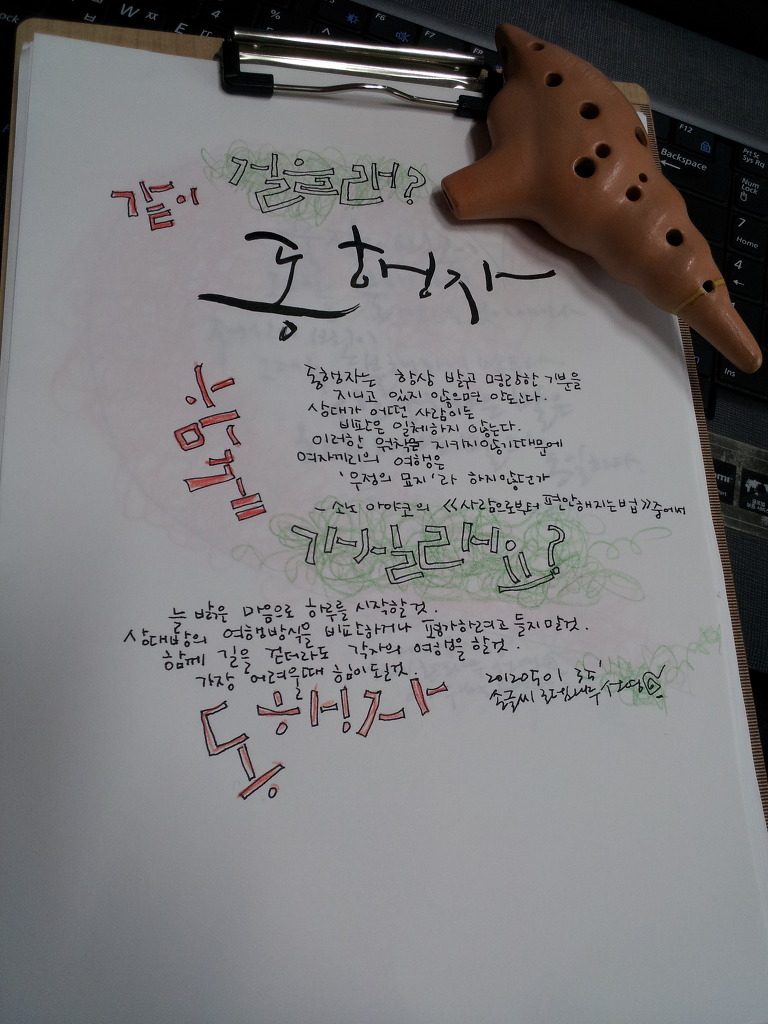 같이 걸을래?
동행자
함께
동행자는 항상 밝고 명랑한 기분을
지니고 있지 않으면 안된다.
상대가 어떤 사람이든
비판은 일체하지 않는다.
이러한 원칙을 지키지않기때문에
여자끼리의 여행은
'우정의 묘지'라 하지않던가
- 소노 아야코의 《사람으로부터 편안해지는법》중에서
가시실리래요?
늘 밝은 마음으로 하루를 시작할것.
상대방의 여행방식을 비판하거나 평가하려고 들지말것.
함께 길을 걷더라도 각자의 여행을 할것.
가장 어려울때 힘이될것.
동행자
20120501
손글씨
W
E
F6
F7
F12
Backspace
Prt Sc
Sys Rq
Num
Lock
7
Home
4
Ins